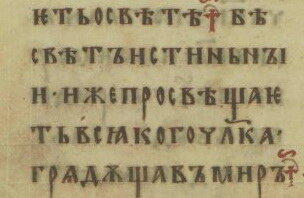 ѥтьосвѣтѣ· бѣ
свѣтъистиньнꙑ
и · ижепросвѣщаѥ
тьвьсꙗкогочлка ·
грѧдѫщавъмиръ